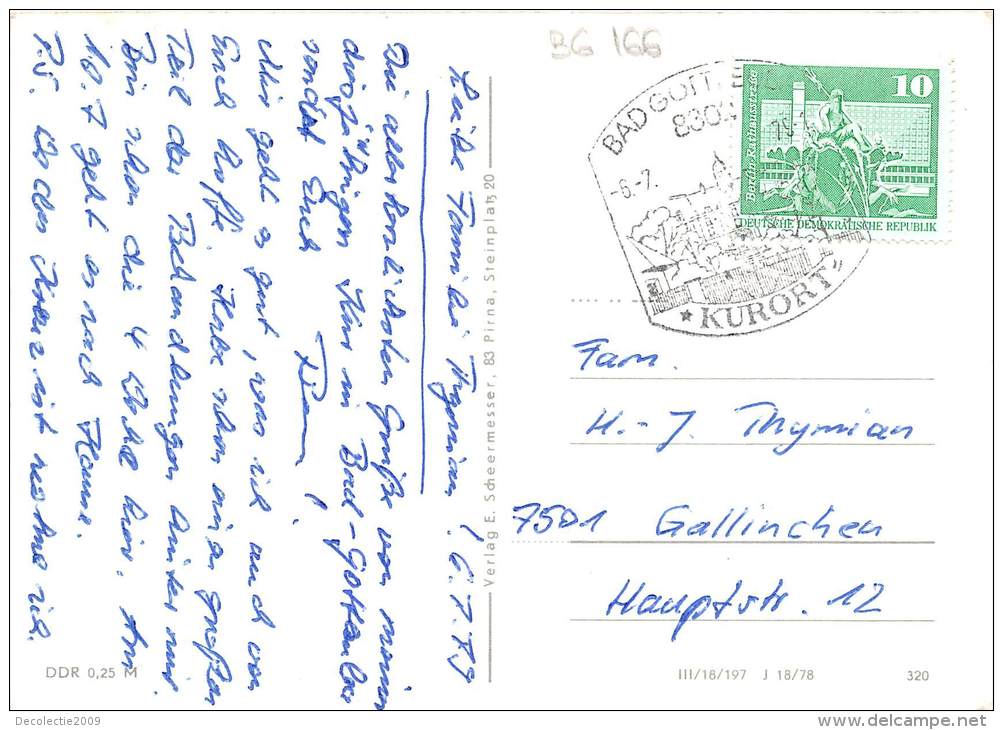 BG 166
Liebe Familie Thymian! 6.7.79
Die allerherzlichsten Grüße von meiner
diesjährigen Kur in Bad-Gottleuba
sendet Euch
Mir geht es gut, was ich auch von
Euch hoffe. Habe schon einen großen
Teil der Behandlungen hinter mir.
Bin schon die 4. Woche hier. Am
10.7 geht es nach Hause.
P.S.
Verlag E. Scheermesser, 83 Pirna, Steinplatz 20
BAD GOTTLEUBA
8302
-6.-7. 79
★ KURORT
10
Berlin-Rathausstraße
DEUTSCHE DEMOKRATISCHE REPUBLIK
Fam.
H.-J. Thymian
7501 Gallinchen
Hauptstr. 12
DDR 0,25 M
III/18/197 J 18/78 320
Decolectie2009
www.delcampe.net